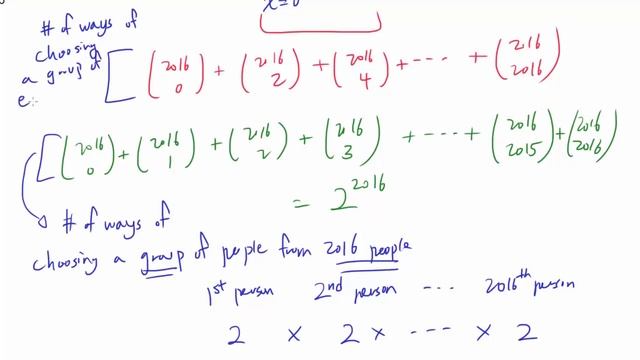 # of ways of
choosing
a group of
e
(2016 0) + (2016 2) + (2016 4) + --- + (2016 2016)
(2016 0) + (2016 1) + (2016 2) + (2016 3) + --- + (2016 2015) + (2016 2016)
= 2^2016
# of ways of
choosing a group of people from 2016 people
1st person 2nd person --- 2016th person
2 × 2 × --- × 2